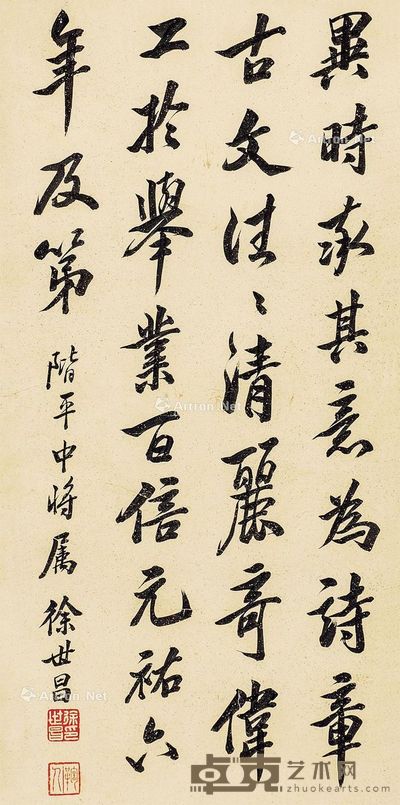 異時率其意為詩章
古文往〻清麗奇偉
工於舉業百倍元祐六
年及第 階平中將属 徐世昌
徐印世昌
Artron.Net
Artron.Net
Artron.Net
卓克艺术网
zhuokearts.com